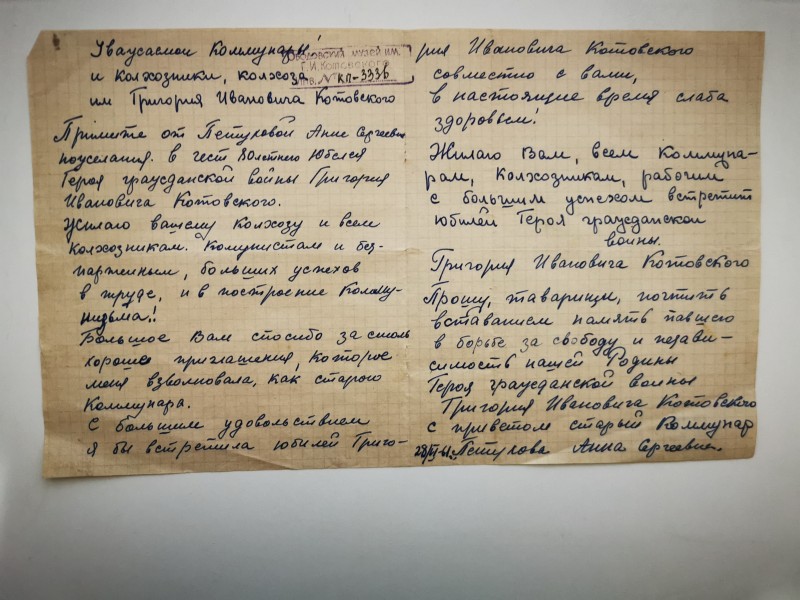 Уваусаемои Коммунары!
и колхозники, колхоза
им Григория Ивановича Котовского
ОБОЕКОВСКИЙ МУЗЕЙ ИМ.
Г. И. КОТОВСКОГО
ИНВ. № КП-3336
Примите от Петуховой Анне Сергеевне
поуселания. в чест 80летнего Юбелея
Героя граусданской войны Григория
Ивановича Котовского.
Жилаго вашему Колхозу и всем
колхозникам. Комунистам и без-
партейным, больших успехов
в труде, и в построение Комму-
низьма!
Большое Вам спосибо за столь
хороше приглашения, которое
меня взволновала, как старого
Коммунара.
С большим удовольствием
я бы встретила юбилей Григо-
рия Ивановича Котовского
совместно с вами,
в настоящие время слаба
здоровьем!
Жилаго Вам, всем Коммуна-
рам, Колхозникам, рабочим
с большим успехом встретит
юбилей Героя граусданской
войны.
Григория Ивановича Котовского
Прошу, таварищи, почтить
вставанием память павшего
в борьбе за свободу и незави-
симость нашей Родины
Героя граусданской войны
Григория Ивановича Котовского
с приветом старый Коммунар
Петухова Анна Сергеевна.